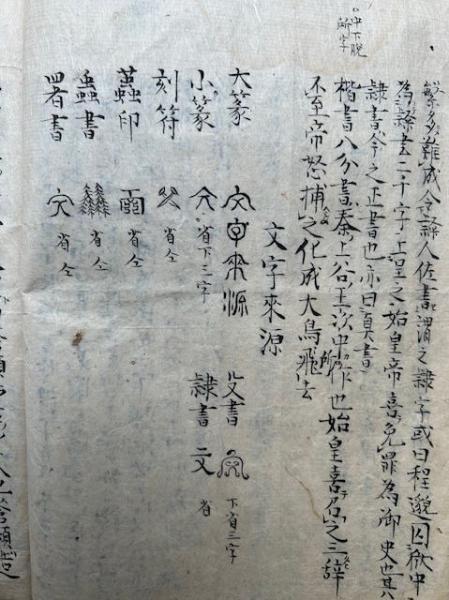 中下脱
所字
繁多難成令隷人佐書謂之隷字或曰程邈囚獄中
為隷書二十字上皇之始皇帝喜免罪為御史也其八
隷書今之正書也亦曰真書
楷書八分書秦上谷王次中所作也始皇喜召之三辞
不至帝怒捕之化成大鳥飛去
文字來源
大篆 文字來源 殳書 下省三字
小篆 文 省下三字 隷書 文 省
刻符 省仝
蟲印 省仝
蟲書 省仝
署書 文 省仝